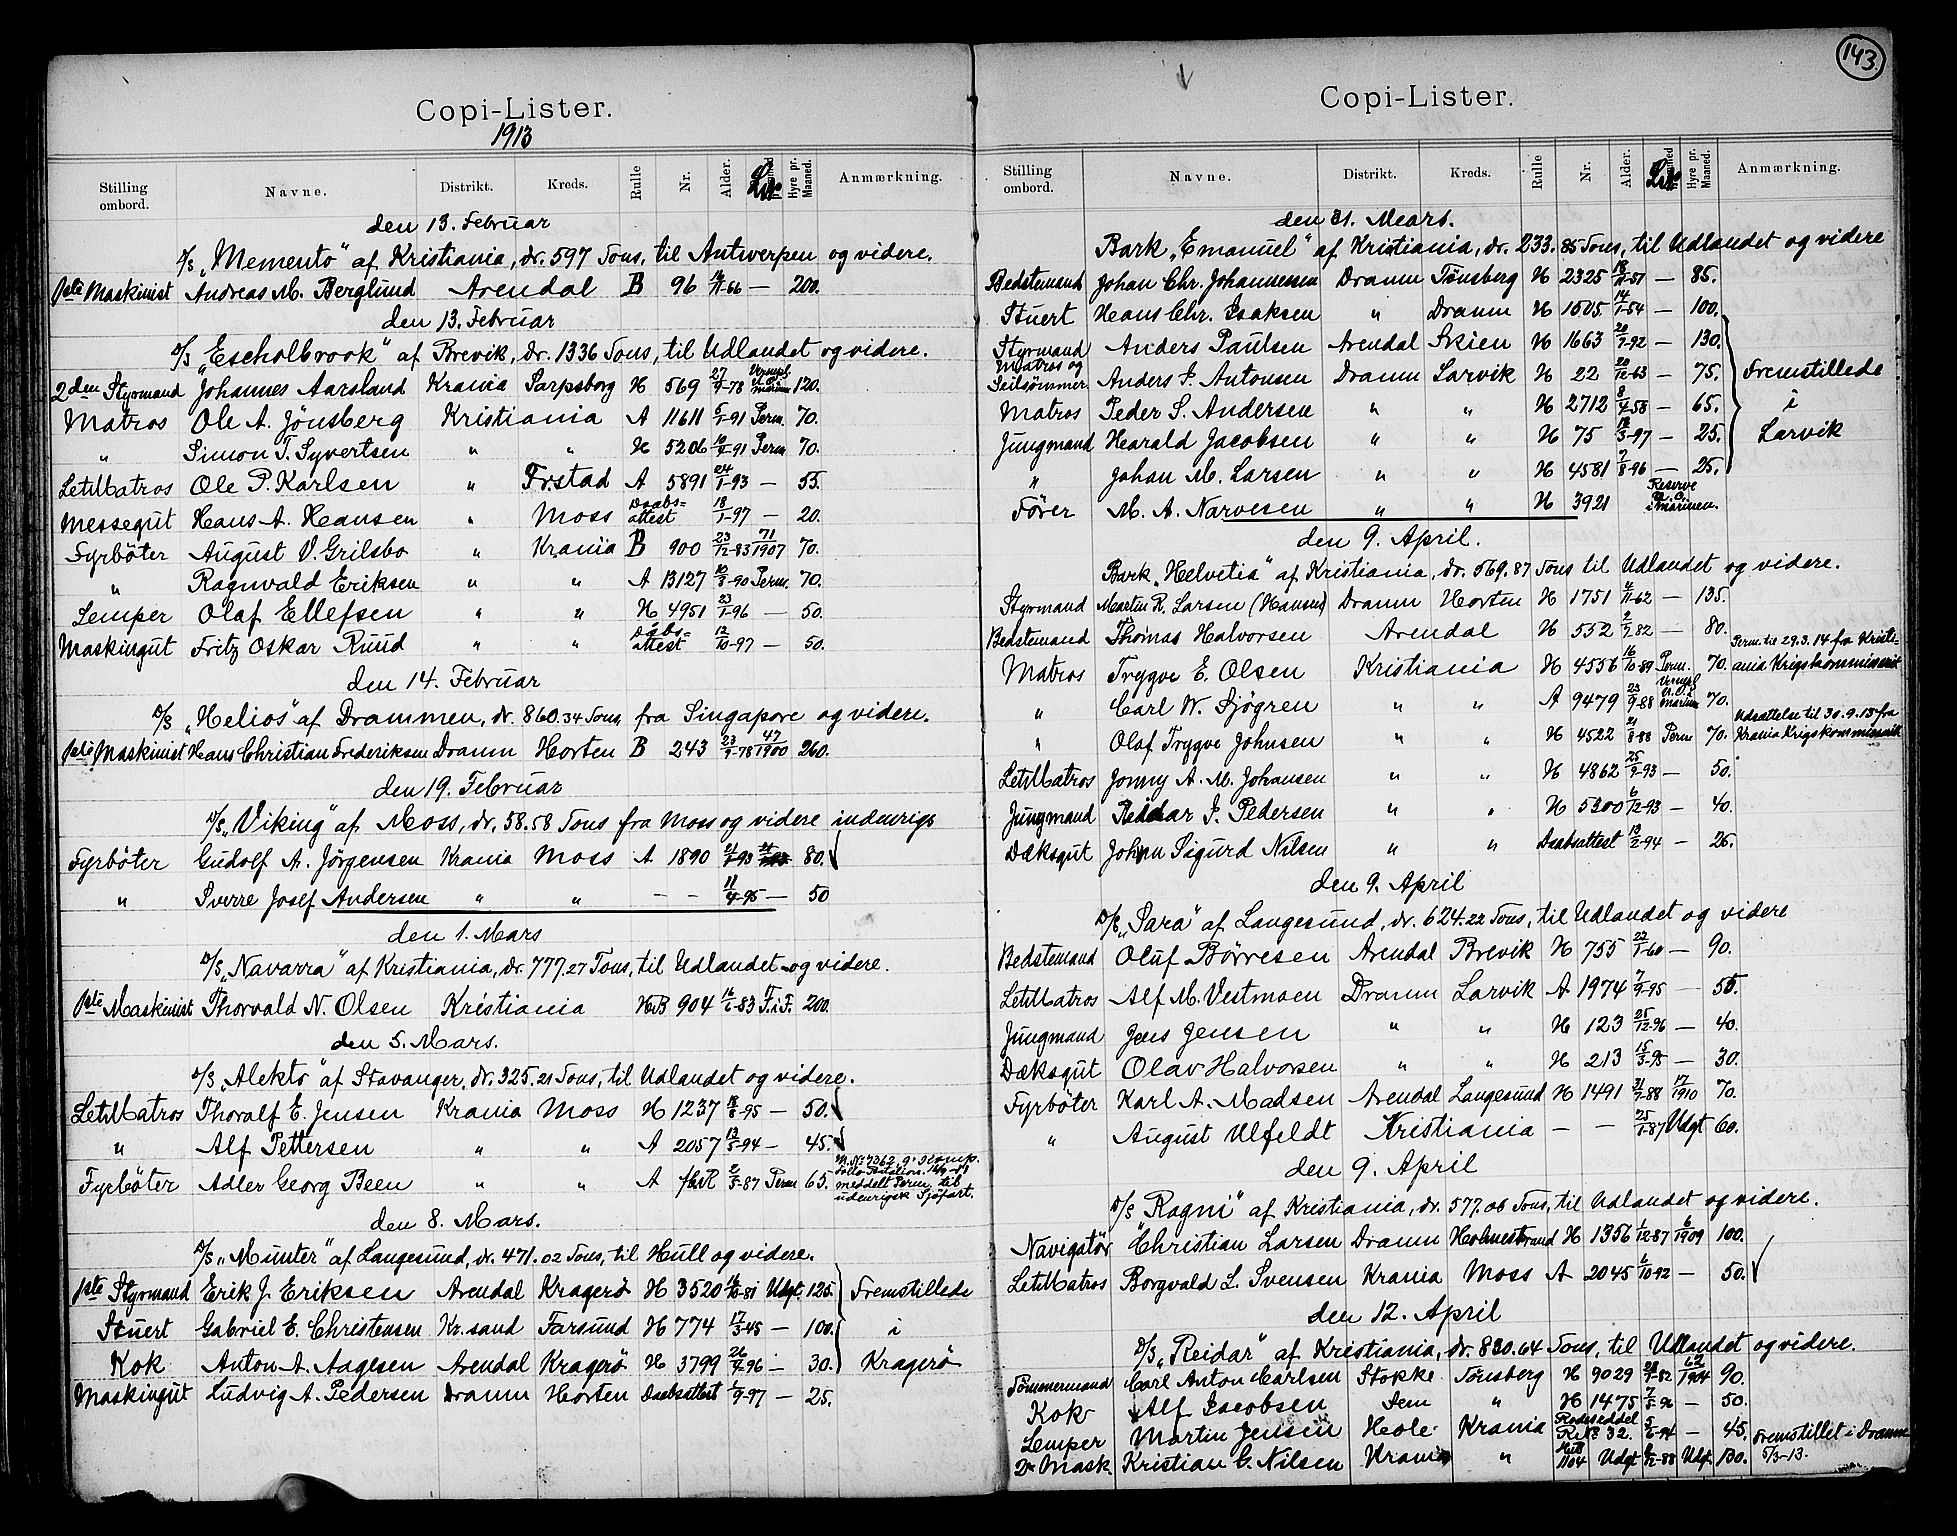 Copi-Lister.
1913
Stilling ombord. Navne. Distrikt. Kreds. Rulle Nr. Alder. Hyre pr. Maaned. Anmærkning.
den 13. Februar
D/S „Memento" af Kristiania, dr. 597 Tons, til Antwerpen og videre.
1ste Maskinist Andreas M. Berglund Arendal B 96 — 200.
den 13. Februar
D/S „Escholbrook" af Brevik, dr. 1336 Tons, til Udlandet og videre.
2den Styrmand Johannes Aarsland Krania Sarpsborg H 569 27/9-78 120.
Matros Ole A. Jönsberg Kristiania A 11611 5/1-91 Perm. 70.
" Simon T. Syvertsen " " H 5206 Perm 70.
LetMatros Ole P. Karlsen " Fr.stad A 5891 24/1-93 — 55.
Messegut Hans A. Hansen " Moss Daabs-attest 18/1-97 — 20.
Fyrböter August V. Grilsbo " Krania B 900 23/12-83 71/1907 70.
" Ragnvald Eriksen " " A 13127 10/8-90 Perm. 70.
Lemper Olaf Ellefsen " " H 4951 23/1-96 — 50.
Maskingut Fritz Oskar Ruud " " Dåbs-attest 12/10-97 — 50.
den 14. Februar
D/S „Helios" af Drammen, dr. 860.34 Tons, fra Singapore og videre.
1ste Maskinist Hans Christian Frederiksen Dramn Horten B 243 23/9-78 47/1900 260.
den 19. Februar
D/S „Viking" af Moss, dr. 58.58 Tons fra Moss og videre indenrigs
Fyrböter Gudolf A. Jörgensen Krania Moss A 1890 80.
" Sverre Josef Andersen " " — — 11/4-95 — 50
den 1. Mars
D/S „Navarra" af Kristiania, dr. 777.27 Tons, til Udlandet og videre.
1ste Maskinist Thorvald N. Olsen Kristiania 904 16/6-83 F.i F. 200.
den 5. Mars.
D/S „Alekto" af Stavanger, dr. 325.21 Tons, til Udlandet og videre.
LetMatros Thoralf E. Jensen Krania Moss H 1237 18/8-95 — 50.
" Alf Pettersen " " A 2057 13/5-94 — 45.
Fyrböter Adler Georg Been " " A 2/5-87 Perm 65. meddelt Perm. til udenrigsk Sjöfart.
den 8. Mars.
D/S „Munter" af Langesund, dr. 471.02 Tons, til Hull og videre.
1ste Styrmand Erik J. Eriksen Arendal Kragerö H 3520 Udgt. 125. Fremstillede
Stuert Gabriel E. Christensen Kr.sand Farsund H 774 17/3-45 — 100. i
Kok Anton A. Aagesen Arendal Kragerö H 3799 — 30. Kragerö
Maskingut Ludvig A. Pedersen Dramn Horten Daabsattest 1/9-97 — 25.
143
Copi-Lister.
Stilling ombord. Navne. Distrikt. Kreds. Rulle Nr. Alder. Hyre pr. Maaned. Anmærkning.
den 31. Mars.
Bark „Emanuel" af Kristiania, dr. 233.85 Tons, til Udlandet og videre
Bedstemand Johan Chr. Johannesen Dramn Tönsberg H 2325 18/11-51 — 85.
Stuert Hans Chr. Isaksen " Dramn H 1505 14/1-54 — 100.
Styrmand Anders Paulsen Arendal Skien H 1663 — 130.
Matros og Seilsömmer Anders J. Antonsen Dramn Larvik H 22 20/12-63 — 75. Fremstillede
Matros Peder S. Andersen " " H 2712 8/4-58 — 65. i
Jungmand Harald Jacobsen " " H 75 — 25. Larvik
" Johan M. Larsen " " H 4581 7/8-96 — 25.
Förer M. A. Narvesen " " H 3921 Reserve U.O. i marinen.
den 9. April.
Bark „Helvetia" af Kristiania, dr. 569.87 Tons til Udlandet og videre.
Styrmand Martin R. Larsen (Hansen) Dramn Horten H 1751 — 135.
Bedstemand Thomas Halvorsen Arendal H 552 — 80.
Matros Trygve E. Olsen Kristiania H 4556 16/10-89 Perm. 70. Perm. til 29.3.14 fra Kristiania Krigskommissariat
" Carl W. Sjögren " " A 9479 23/9-88 70.
" Olaf Trygve Johnsen " " H 4522 21/8-88 Perm 70. Udsættelse til 30.9.13 fra Krania Krigskommissariat
LetMatros Jonny A. M. Johansen " " H 4862 25/9-93 — 50.
Jungmand Reidar J. Pedersen " " H 5300 6/12-93 — 40.
Dæksgut John Sigurd Nilsen " " Daabsattest — 25.
den 9. April
D/S „Sara" af Langesund, dr. 624.22 Tons, til Udlandet og videre
Bedstemand Oluf Börresen Arendal Brevik H 755 22/1-60 — 90.
LetMatros Alf M. Vestmoen Dramn Larvik A 1974 7/9-95 — 55.
Jungmand Jens Jensen " " H 123 25/12-96 — 40.
Dæksgut Olav Halvorsen " " H 213 15/3-95 — 30.
Fyrböter Karl A. Madsen Arendal Langesund H 1491 17/1910 70.
" August Ulfeldt Kristiania — — 25/1-87 Udgt 60.
den 9. April
D/S „Ragni" af Kristiania, dr. 577.06 Tons, til Udlandet og videre.
Navigatör Christian Larsen Dramn Holmestrand H 1356 1/12-87 6/1909 100.
LetMatros Borgvald L. Svensen Krania Moss A 2045 6/10-92 — 50.
den 12. April
D/S „Reidar" af Kristiania, dr. 830.64 Tons, til Udlandet og videre.
Tömmermand Carl Anton Carlsen Stokke Tönsberg H 9029 62/1904 90.
Kok Alf Jacobsen Sem " H 1475 7/5-96 — 50.
Lemper Martin Jensen Hole Krania Rodeseddel 32. — 45. Fremstillet i Dramn
2n Mask. Kristian G. Nilsen Krania " 1104 Udgt Udgt. 130. 5/3-13.